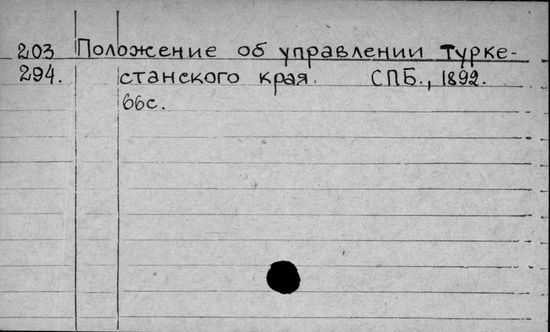 203 Положение об управлении Турке-
294. станского края. СПБ., 1892.
66с.